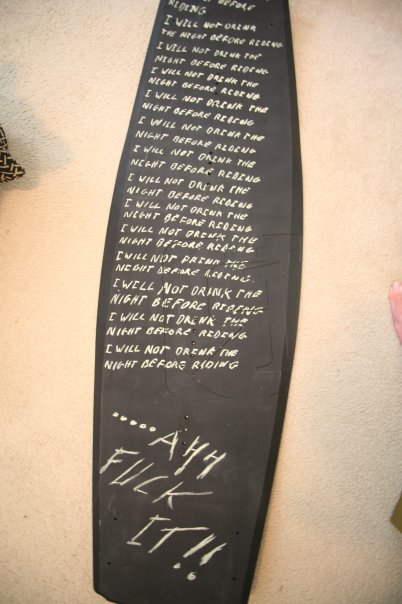 BEFORE
RIDING
I WILL NOT DRINK
THE NIGHT BEFORE RIDING
I WILL NOT DRINK THE
NIGHT BEFORE RIDING
I WILL NOT DRINK THE
NIGHT BEFORE RIDING
I WILL NOT DRINK THE
NIGHT BEFORE RIDING
I WILL NOT DRINK THE
NIGHT BEFORE RIDING
I WILL NOT DRINK THE
NIGHT BEFORE RIDING
I WILL NOT DRINK THE
NIGHT BEFORE RIDING
I WILL NOT DRINK THE
NIGHT BEFORE RIDING
I WILL NOT DRINK THE
NIGHT BEFORE RIDING
I WILL NOT DRINK THE
NIGHT BEFORE RIDING.
I WILL NOT DRINK THE
NIGHT BEFORE RIDING
I WILL NOT DRINK THE
NIGHT BEFORE RIDING
I WILL NOT DRINK THE
NIGHT BEFORE RIDING
.....AHH
FUCK
IT!!